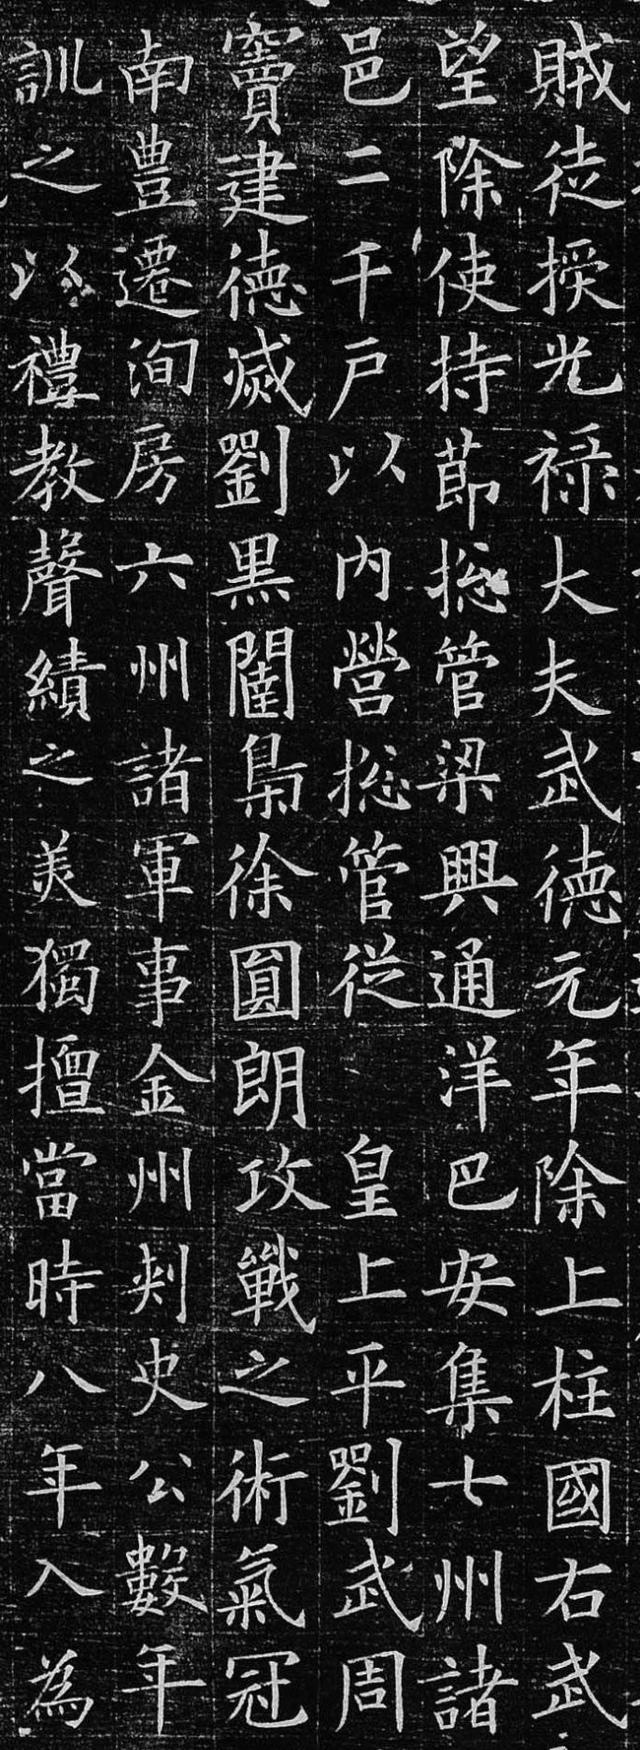 賊徒授光禄大夫武德元年除上柱國右武
望除使持節揔管梁興通洋巴安集七州諸
邑二千戶以内營揔管従　皇上平劉武周
竇建德滅劉黒闥梟徐圓朗攻戰之術氣冠
南豊遷洵房六州諸軍事金州刾史公數年
訓之以禮教聲績之美獨擅當時八年入為